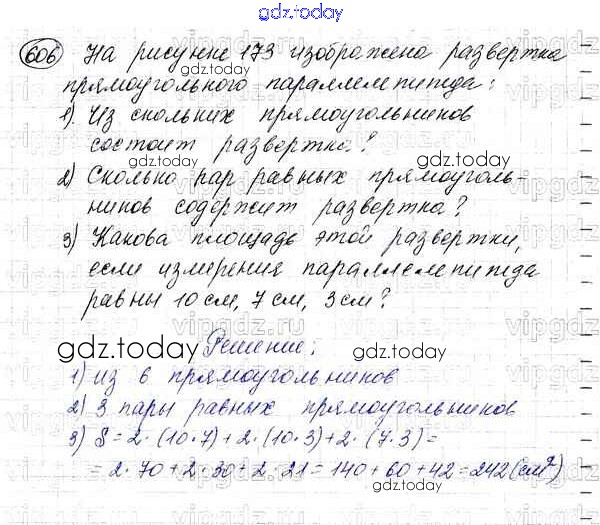 gdz.today
606 На рисунке 173 изображена развертка
прямоугольного параллелепипеда:
1) Из скольких прямоугольников
состоит развертка?
gdz.today
2) Сколько пар равных прямоуголь-
ников содержит развертка?
3) Какова площадь этой развертки,
если измерения параллелепипеда
равны 10 см, 7 см, 3 см?
gdz.today Решение: gdz.today
1) из 6 прямоугольников
2) 3 пары равных прямоугольников
3) S = 2·(10·7)+2·(10·3)+2·(7·3)=
= 2·70+2·30+2·21=140+60+42=242(см²)
gdz.today